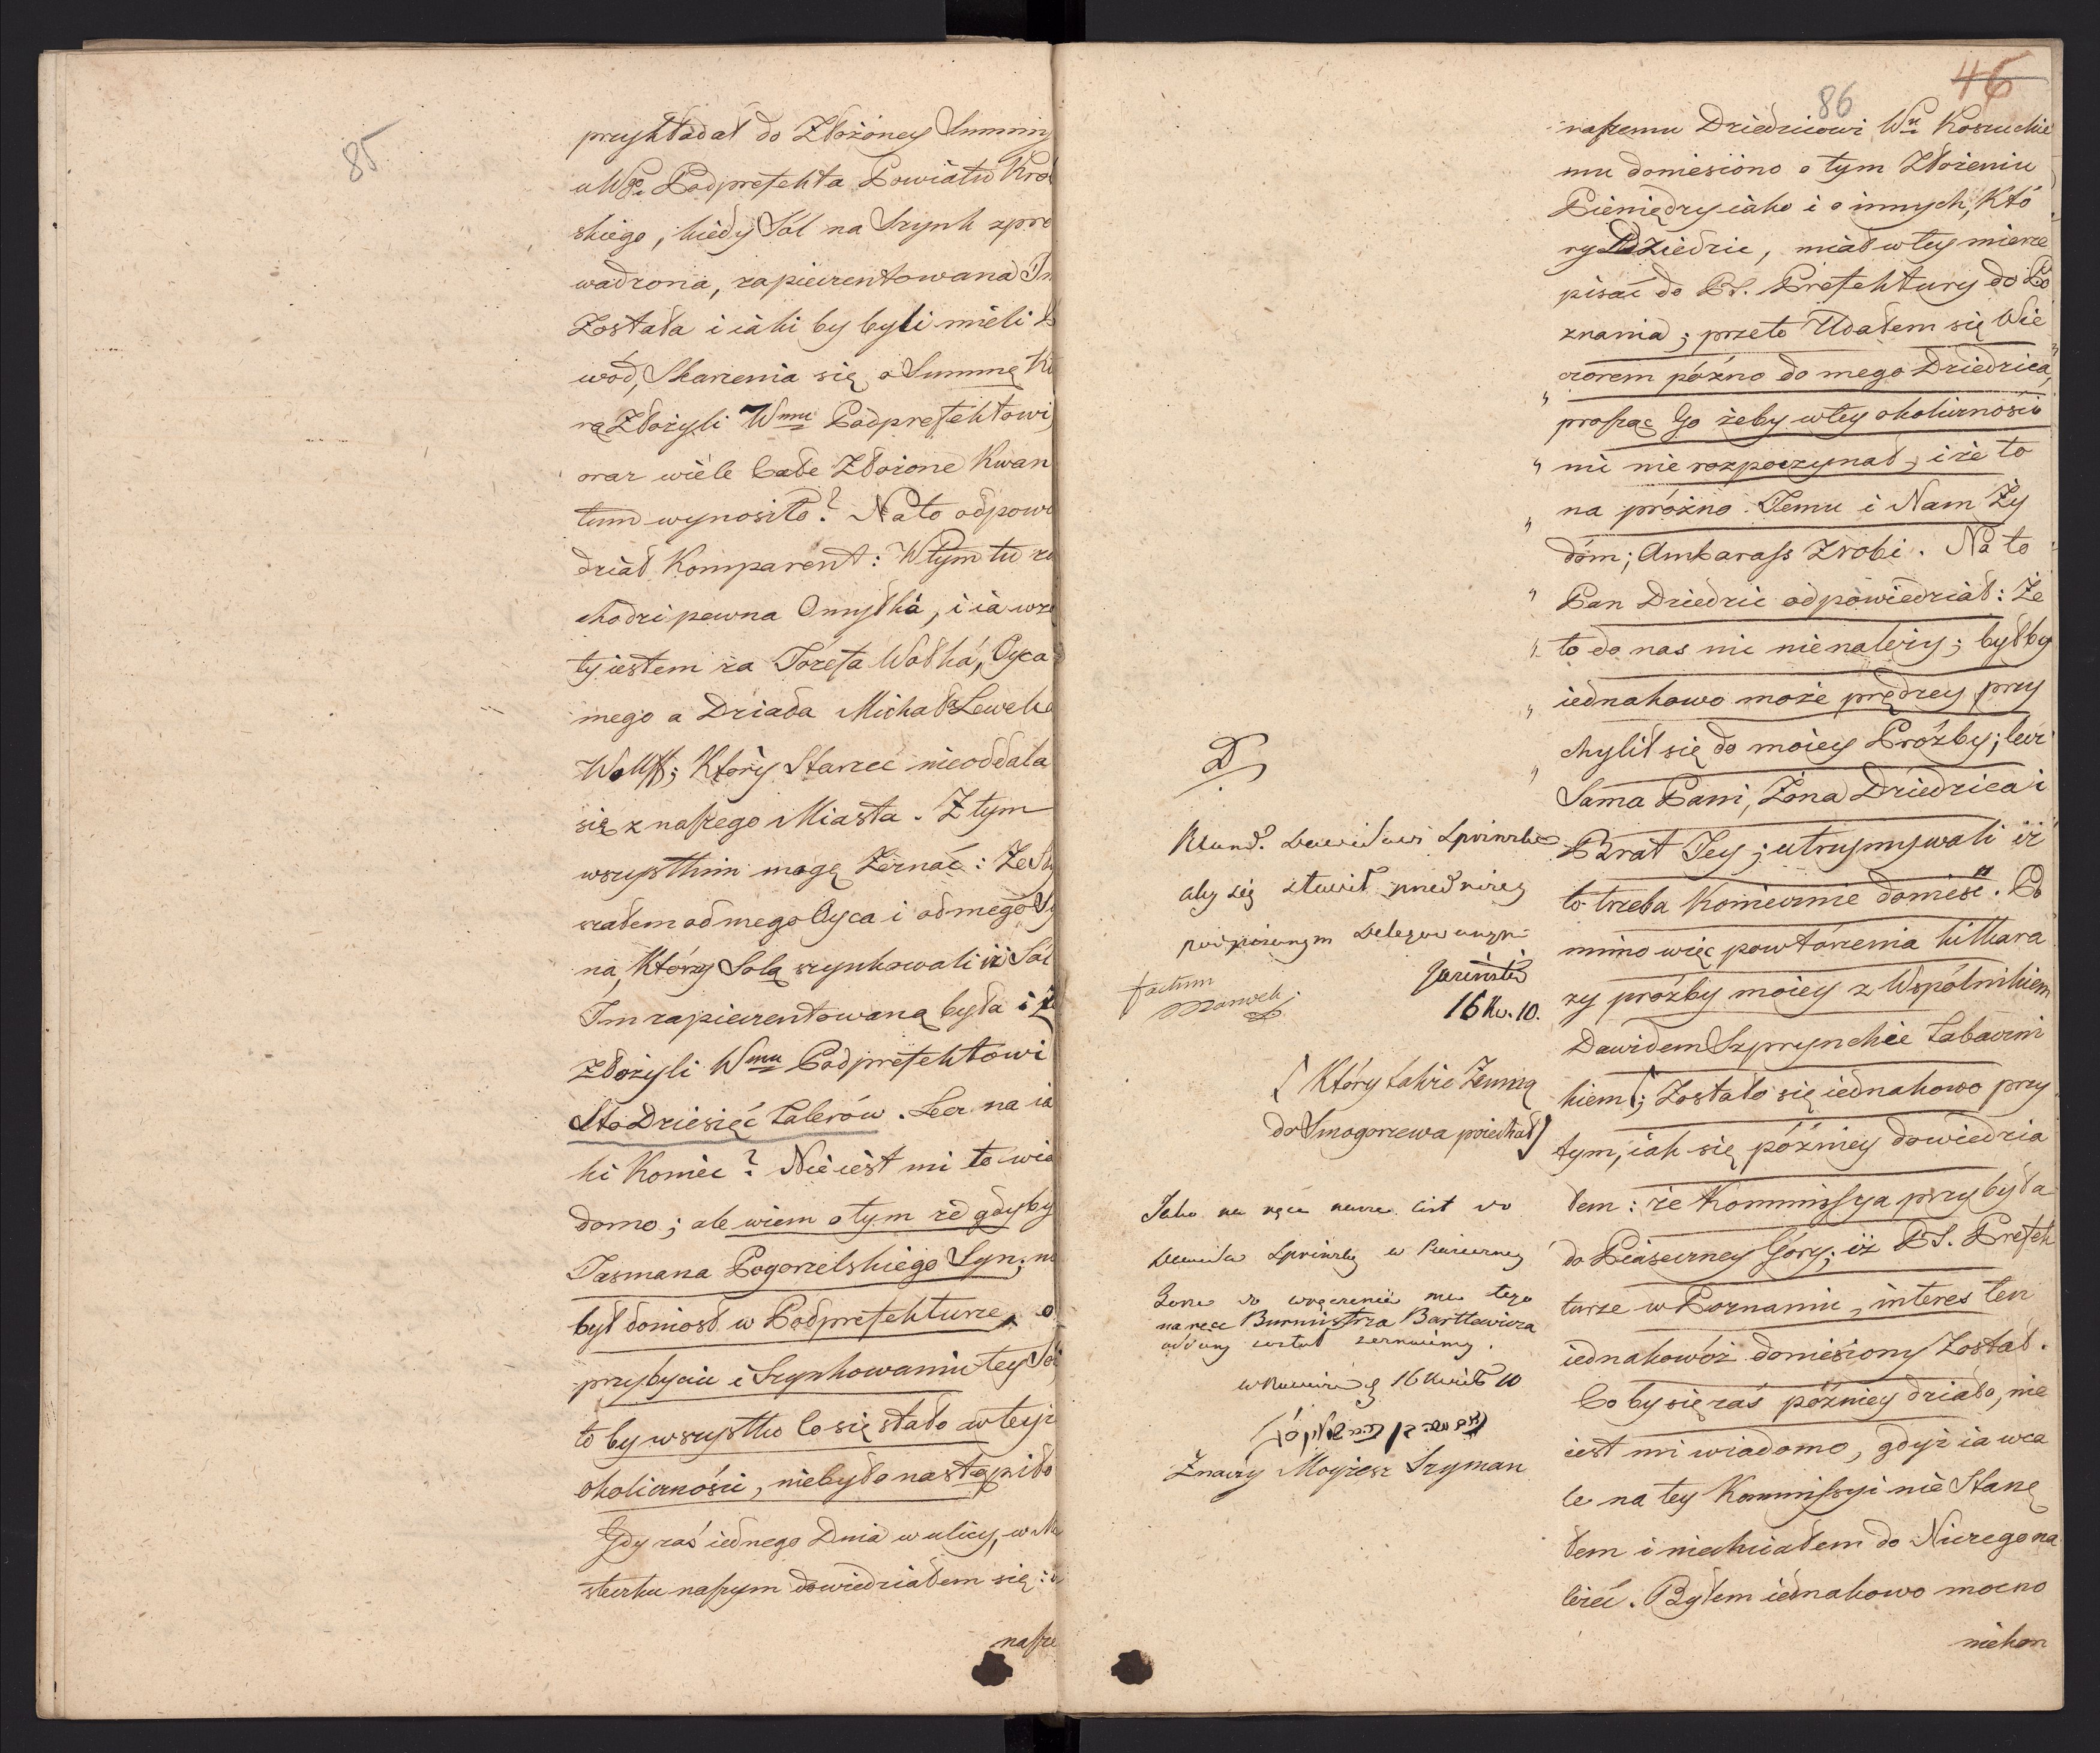 85
przykładał do Złożoney Summy
u Wgo Podprefekta Powiatu Kro
skiego, kiedy Sól na Szynk zpro
wadzona, zapieczentowana Im
Została i iaki by byli mieli
wód, Skarzenia się o Summę Kt
rą Złożyli Wmu Podprefektowi
oraz wiele Całe Złożone Kwan
tum wynosiło? Na to odpowi
dział Komparent: W tym tu za
chodzi pewna Omyłka, i ia wzi
ty iestem za Józefa Wolka, Oyca
mego a Dziada Michała Lewek
Wolff; Który Starzec nieoddala
się z naszego Miasta. Z tym
wszystkim mogę Zeznać: Ze Sły
szałem od mego Oyca i od mego Sy
na, Którzy Solą szynkowali iż Sól
Im zapieczentowaną była i że
złożyli Wmu Podprefektowi
Sto Dziesięć Talerów. Lecz na ia
ki Koniec? Nie iest mi to wia
domo; ale wiem o tym że gdyby
Jasmana Pogorzelskiego Syn, ni
był doniosł w Podprefekturze, o
przybyciu i Szynkowaniu tey Soli
to by wszystko Co się stało w teyż
okoliczności, niebyło nastąpiło
Gdy zaś iednego Dnia w ulicy, w Mia
steczku naszym dowiedziałem się:
nasze
46
86
naszemu Dziedzicowi Wu Koszuckie
mu doniesiono o tym Złożeniu
Pieniędzy iako i o innych, Któ
ry Dziedzic, miał w tey mierze
pisać do PS. Prefektury do Po
znania; przeto Udałem się Wie
czorem pózno do mego Dziedzica,
prosząc Go żeby w tey okoliczności
nic nie rozpoczynał, i że to
na prózno Jemu i Nam Ży
dóm; Ambarass Zrobi. Na to
Pan Dziedzic odpowiedział: Że
to do nas nic nienależy; byłby
iednakowo może prędzey przy
chylił się do moiey Prózby; lecz
Sama Pani, Żona Dziedzica i
Brat Jey; utrzymywali iż
to trzeba Koniecznie donieść. Po
mimo więc powtórzenia kilkara
zy prózby moiey z Wspólnikiem
Dawidem Szprynckie Tabaczni
kiem; Zostało się iednakowo przy
tym, iak się pózniey dowiedzia
łem: że Kommissya przybyła
do Piaseczney Góry; iż PS. Prefek
turze w Poznaniu, interes ten
iednakowóż doniesiony Został.
Co by się zaś pózniey działo, nie
iest mi wiadomo, gdyż ia wca
le na tey Kommissyi nie Staną
łem i niechciałem do Niczego na
leżeć. Byłem iednakowo mocno
niekon
D
aby się stawił przed niżey
podpisanym Delegowanym
16 Kw. 10.
factum
Który także Zemną
do Smogorzewa poiechał
Jako na ręce nasze list do
Dawida w Piaseczney
Gorze do wręczenia mu tego
na ręce Burmistrza Bartlewicza
oddany został zeznaiemy.
16 Kwiet 10
Znaczy Moyżesz Szyman